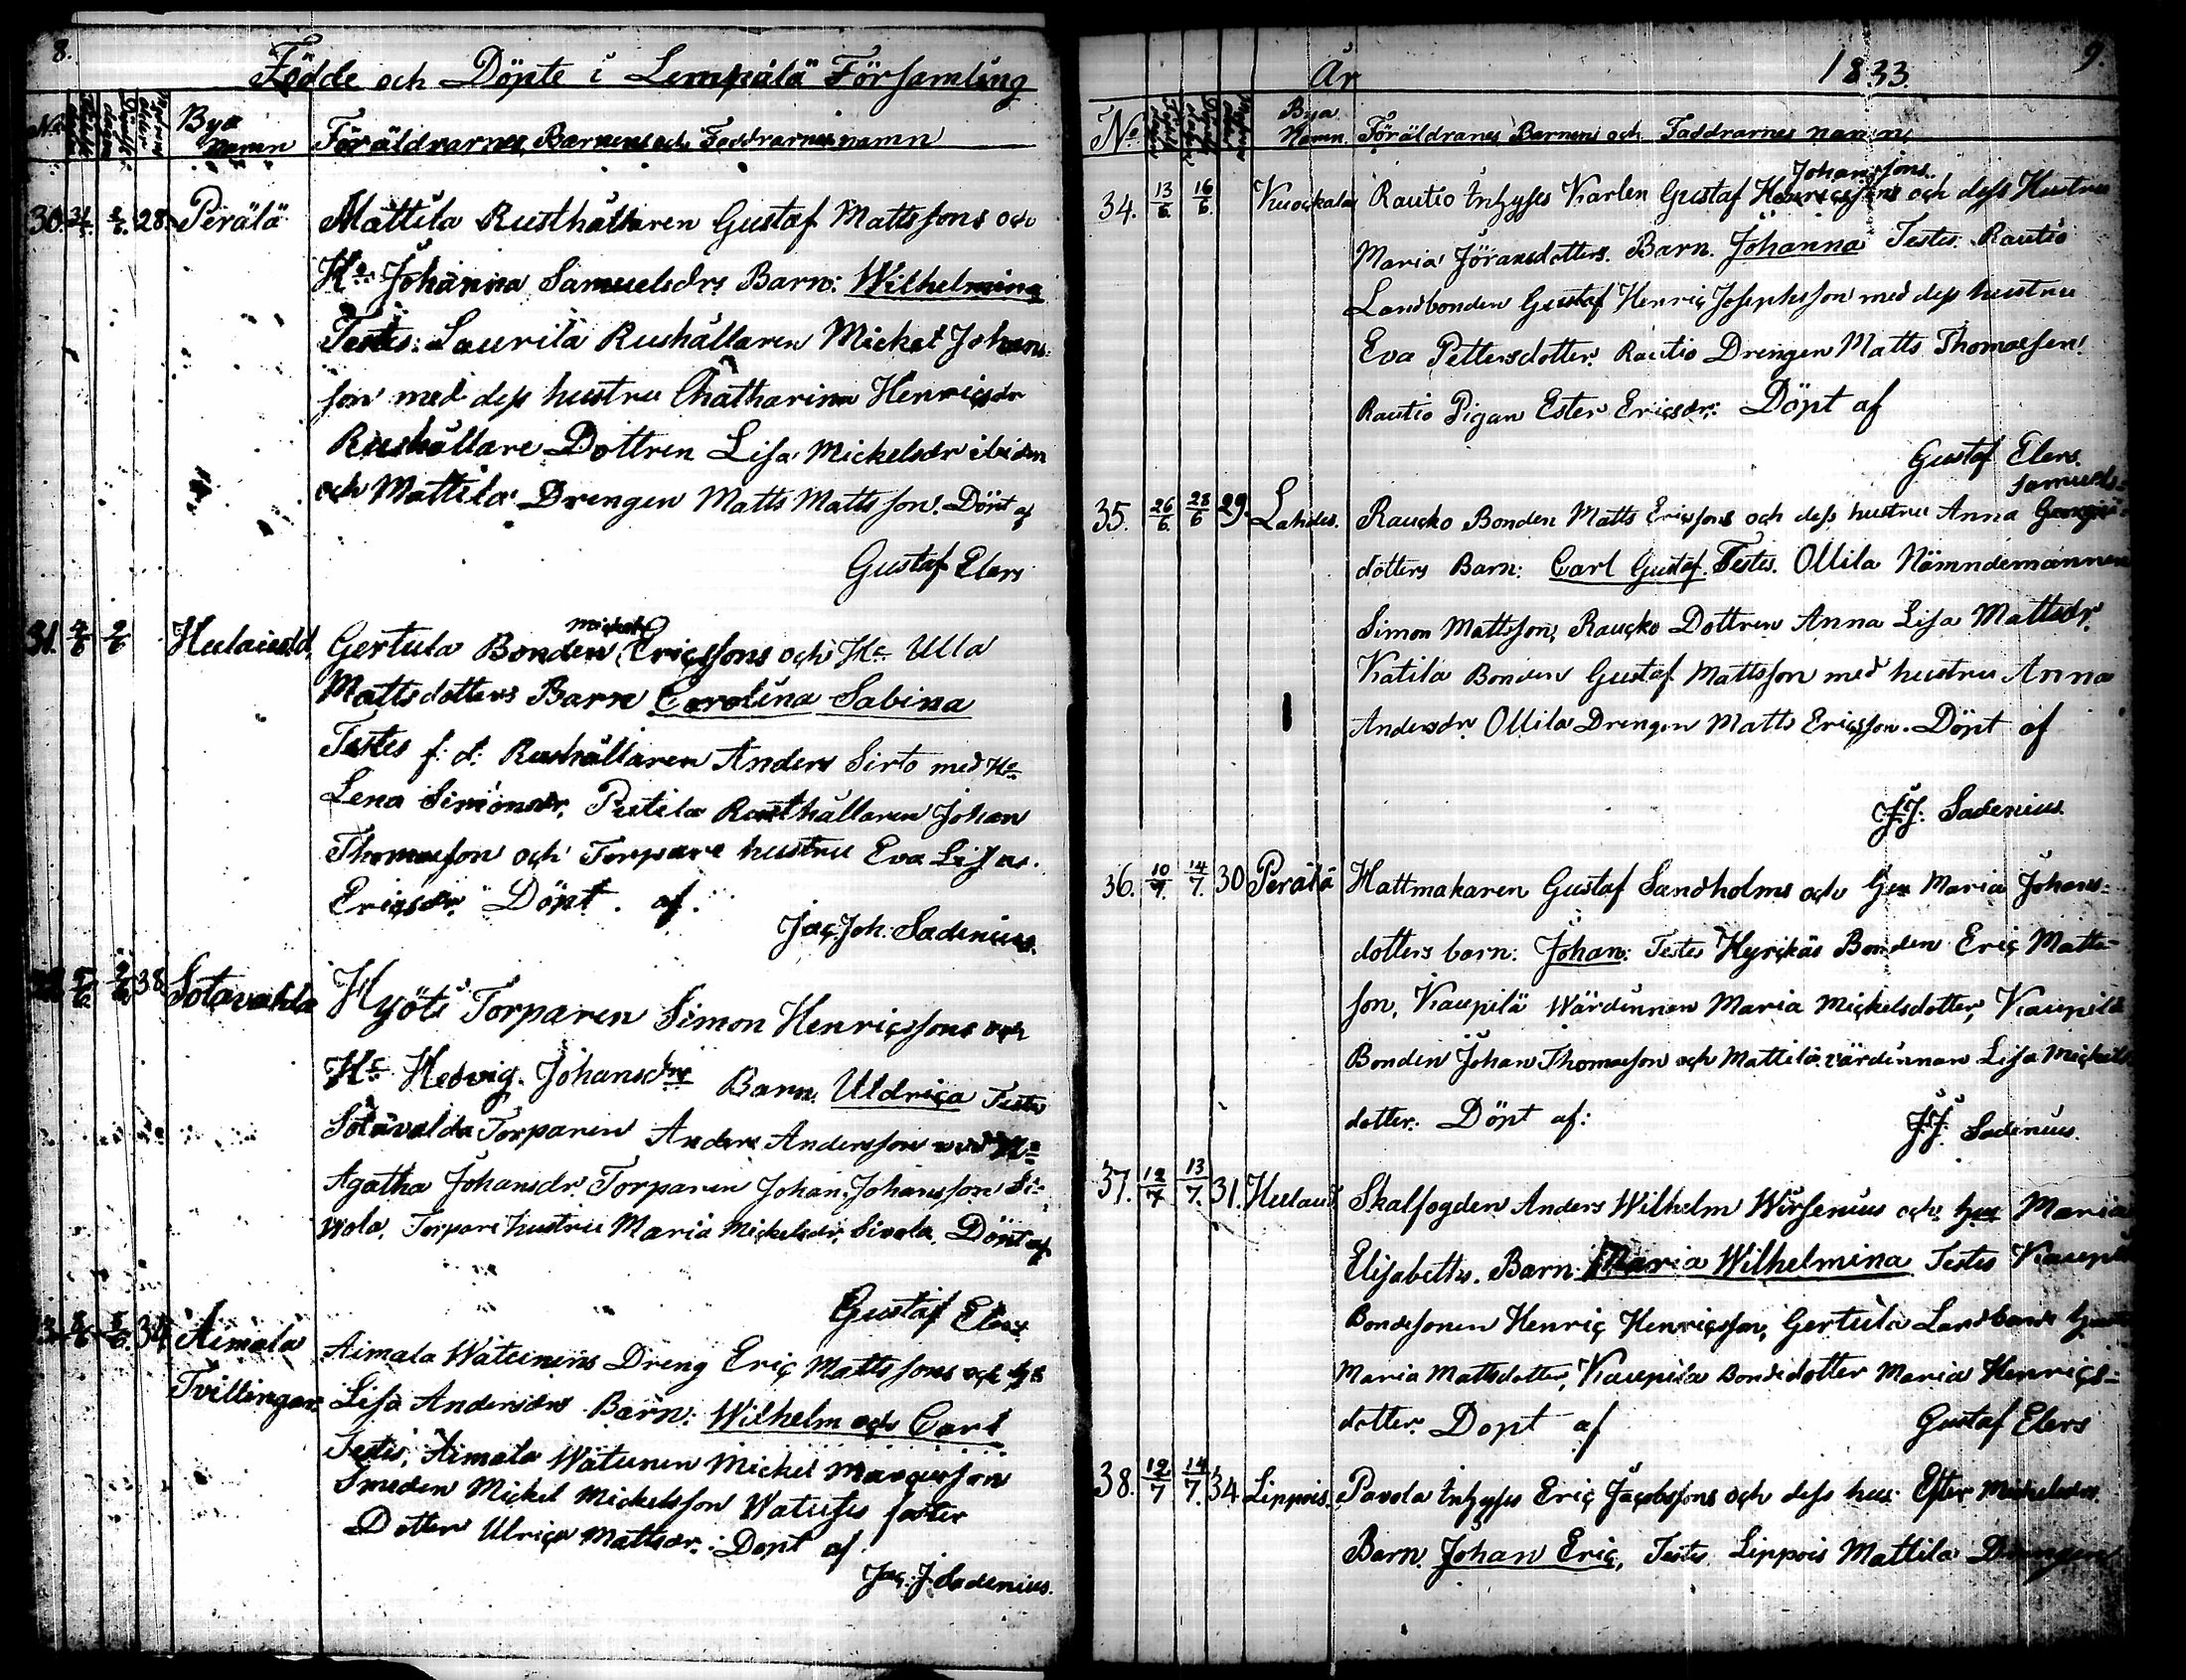 8.
Födde och Döpte i Lempälä Församling
No
Bya namn
Föräldrarnes, Barnens och Faddrarnes namn
30. 2/6 28. Perälä
Mattila Rusthållaren Gustaf Mattssons och
Ho Johanna Samuelsdrs Barn: Wilhelmina
Testes: Laurila Rushållaren Mickel Johans
son med dess hustru Chatharina Henricsdr
Rushållare Dottren Lisa Mickelsdr ibidm
och Mattila Drengen Matts Mattsson. Döpt af
Gustaf Elers
31. Hulaiesld.
Mickel
Gertula Bonden Ericssons och Ho Ulla
Mattsdotters Barn Carolina Sabina
Testes f: d: Rushållaren Anders Sirto med Ho
Lena Simonsdr, Putila Rusthållaren Johan
Thomasson och Torpare hustru Eva Lisa
Ericsdr. Döpt af.
Jac. Joh. Sadenius.
38 Sotavalda
Hyöti Torparen Simon Henricssons och
Ho Hedvig Johansdrs Barn. Uldrica Testes
Sotavalda Torparen Anders Andersson med Ho
Agatha Johansdr. Torparen Johan Johansson Si-
vola, Torpare hustru Maria Mickelsdr. Sivola. Döpt af
Gustaf Elers
34 Aimala
Tvillingar.
Aimala Watuinens Dreng Eric Mattssons och
Lisa Andersdrs Barn: Wilhelm och Carl
Testes, Aimala Watuinen Mickel Marcusson
Smeden Mickel Mickelsson Watuses
Dotter Ulrica Mattsdr. Döpt af
Jac. J. Sadenius.
År 1833. 9.
No Bya Namn. Föräldranes Barnens och Faddrarnes namn
Johanssons
34. 13/6 16/6 Kuockala Rautio Inhyses Karlen Gustaf och dess Hustru
Maria Jöransdotters. Barn. Johanna Testes. Rautio
Landbonden Gustaf Henric Josephsson med dess hustru
Eva Pettersdotter. Rautio Drengen Matts Thomasson.
Rautio Pigan Ester Ericsdr: Döpt af
Gustaf Elers.
Samuels-
35. 26/6 28/6 29. Lahdes. Raucko Bonden Matts Ericssons och dess hustru Anna
dotters Barn: Carl Gustaf. Testes. Ollila Nämndemannen
Simon Mattsson, Raucko Dottren Anna Lisa Mattsdr.
Katila Bonden Gustaf Mattsson med hustru Anna
Andersdr. Ollila Drengen Matts Ericsson. Döpt af
J.J. Sadenius.
36. 10/7 14/7 30 Perälä Hattmakaren Gustaf Sandholms och Maria Johans-
dotters barn: Johan: Testes Hyrckäs Bonden Eric Matts-
son, Kaupilä Wärdinnen Maria Mickelsdotter, Kaupila
Bonden Johan Thomasson och Mattila värdinnan Lisa Mickels
dotter. Döpt af: J.J. Sadenius.
37. 12/7 13/7 31. Skalfogden Anders Wilhelm Wirsenius och Maria
Elisabeths. Barn. Maria Wilhelmina Testes
Bondesonen Henric Henricsson, Gertula Landbonde
Maria Mattsdotter, Kaupila Bondedotter Maria Henrics-
dotter. Döpt af Gustaf Elers
38. 12/7 14/7 34. Lippois. Pavola Inhyses Eric Jacobssons och dess hus. Ester Mickelsdrs.
Barn. Johan Eric, Testes. Lippois Mattila Drengen